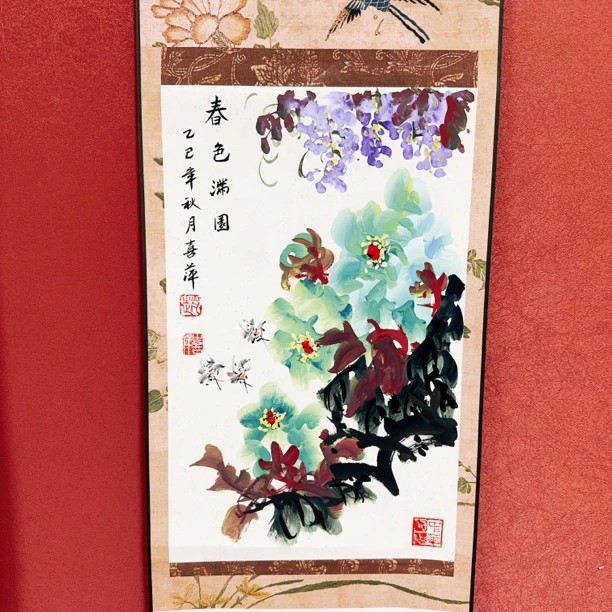 春色满园
乙巳年秋月喜萍